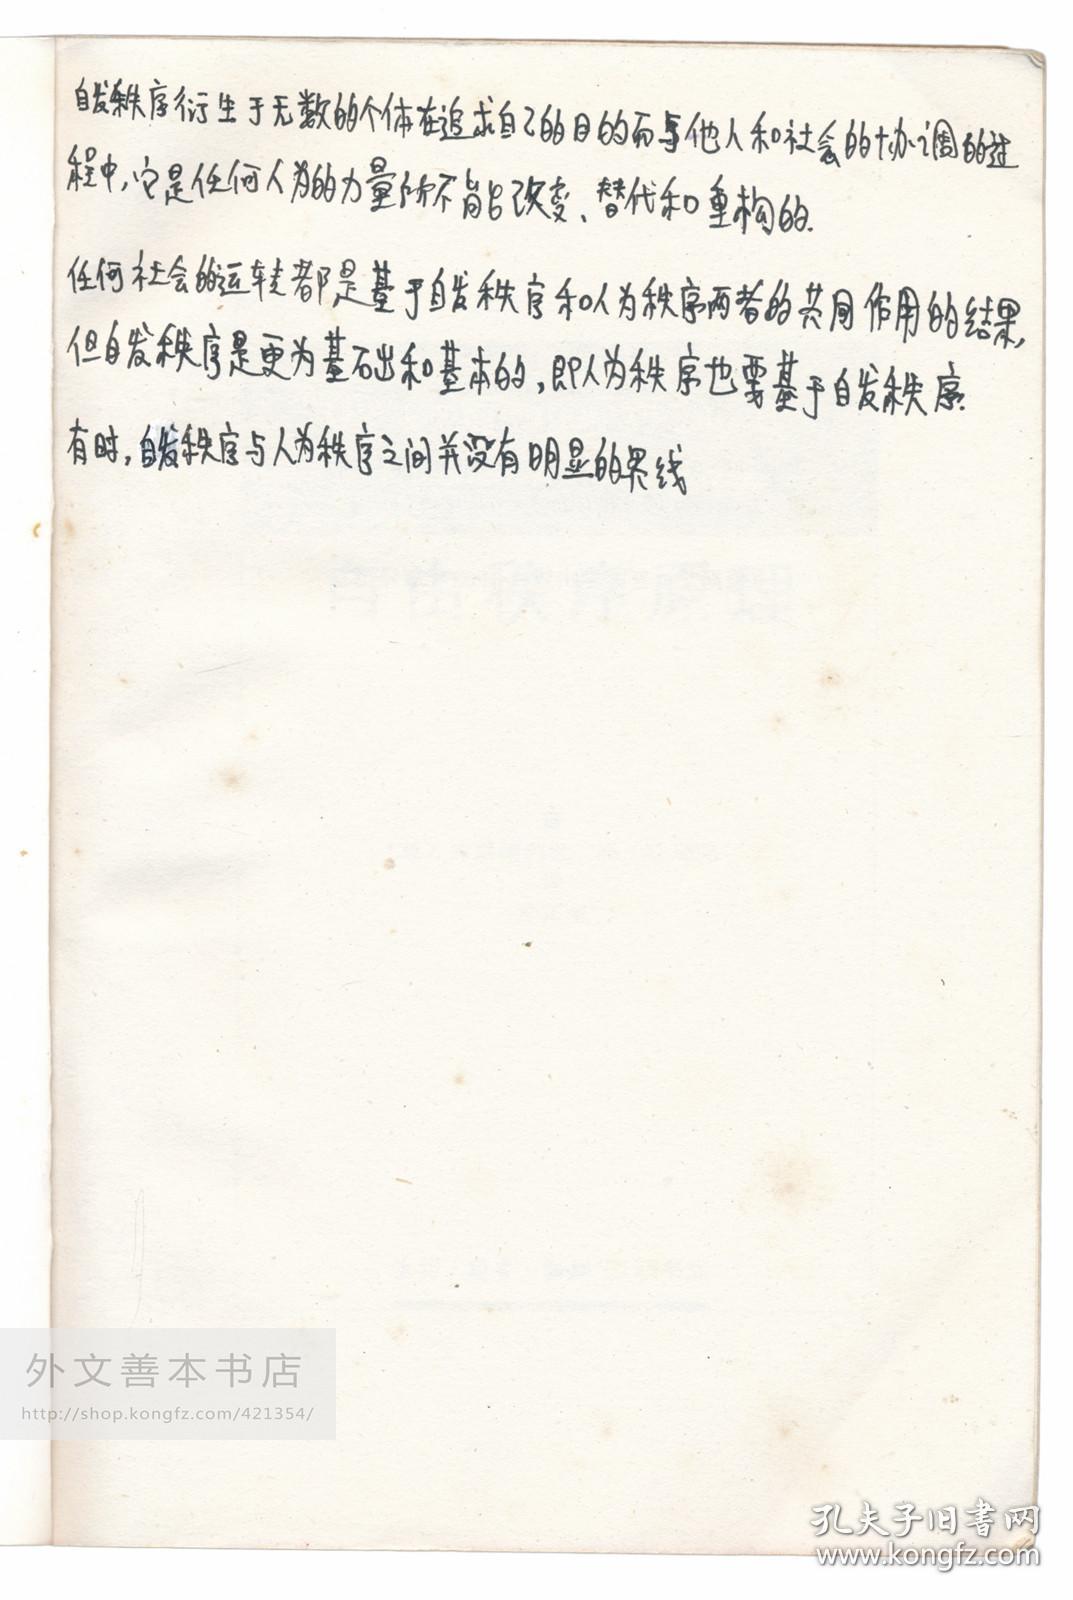 自发秩序衍生于无数的个体在追求自己的目的而与他人和社会的协调的过
程中,它是任何人为的力量所不能改变、替代和重构的.
任何社会的运转都是基于自发秩序和人为秩序两者的共同作用的结果,
但自发秩序是更为基础和基本的,即人为秩序也要基于自发秩序.
有时,自发秩序与人为秩序之间并没有明显的界线
外文善本书店
http://shop.kongfz.com/421354/
孔夫子旧书网
www.kongfz.com